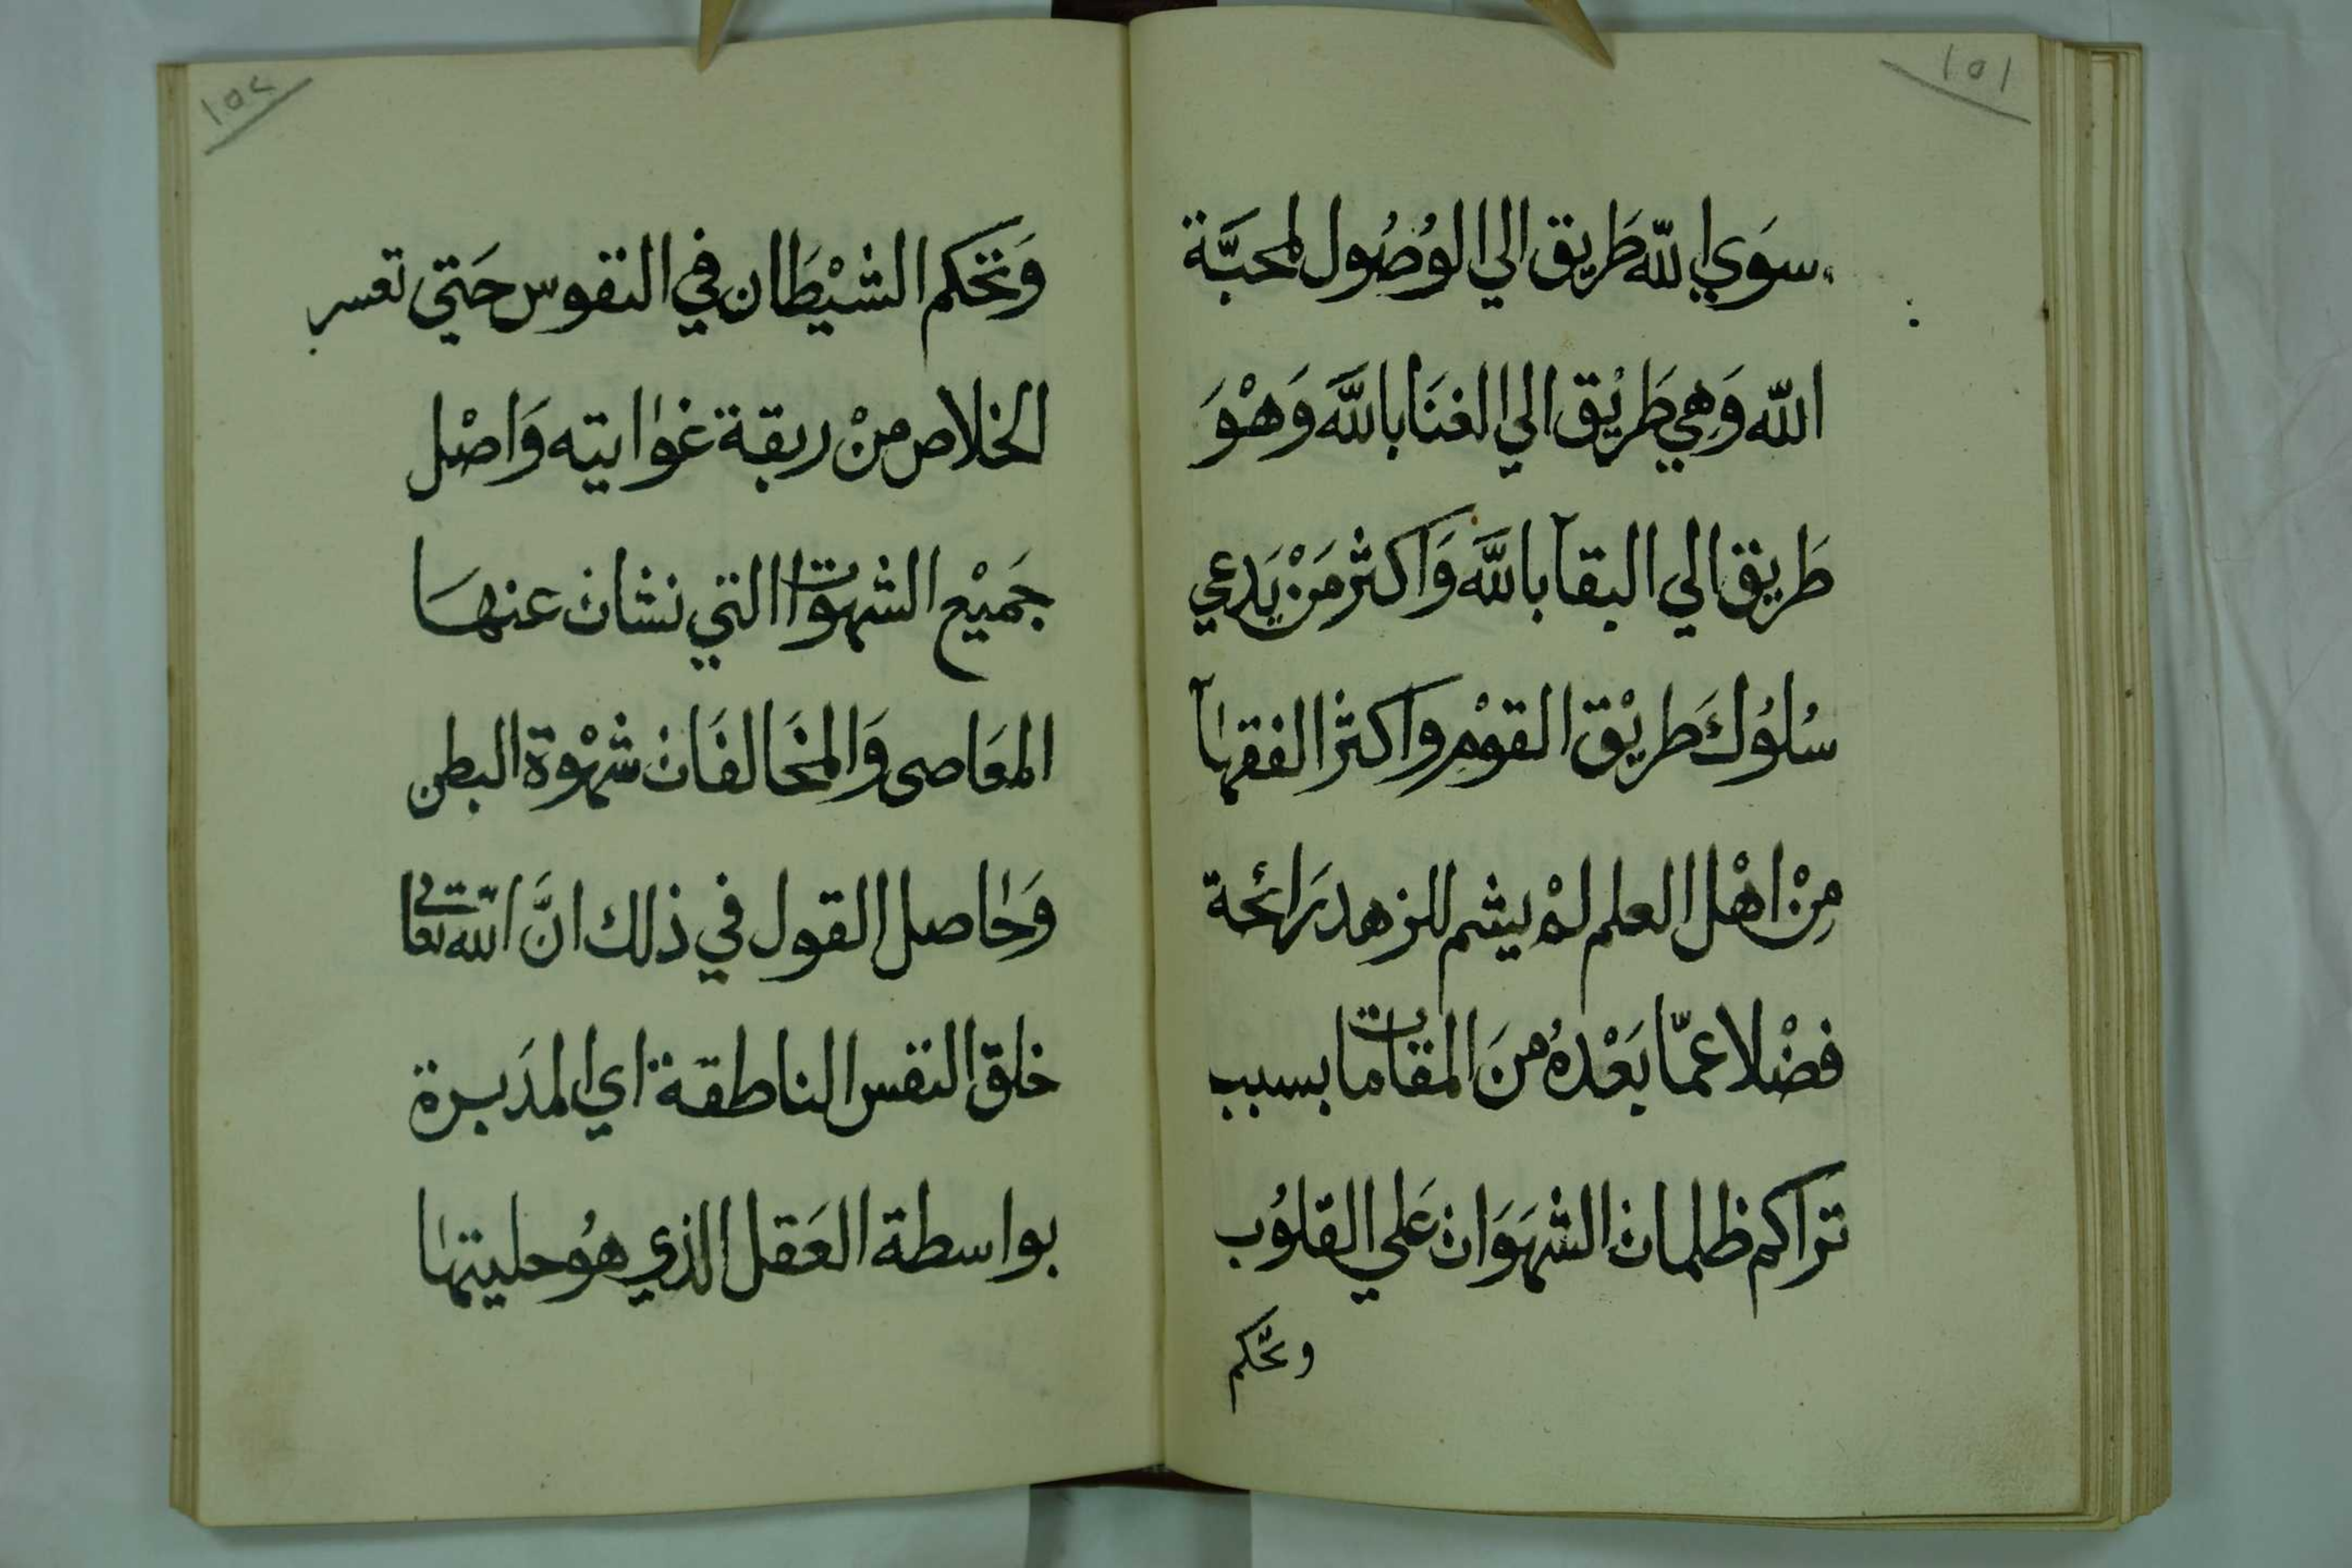 ١٥١
سوَي الله طَريق الي الوُصُول لمحبَّة
الله وَهِي طَريْق الي الغنَا بالله وَهْوَ
طَريق الي البقآ بالله وَاكثر مَنْ يَدعي
سُلوُك طَريْق القوْم واكثر الفقهآ
مِنْ اهْل العلم لمْ يشم للزهد رَائحة
فضْلا عمّا بَعْدهُ منَ المقامات بسبب
تراكم ظلمات الشهَوَات عَلي القلوُب
وتحكم
١٥٢
وَتحكم الشيْطَان في النفوس حَتي تعسر
الخلاص منْ ربقة غوايته وَاصْل
جَميْع الشهوات التي نشات عنهَا
المعَاصى وَالمخَالفَات شهْوة البطن
وَحاصل القول في ذلك انَّ الله تعالى
خلق النفس الناطقة اي المدَبرة
بواسطة العَقل الذي هُو حليتها